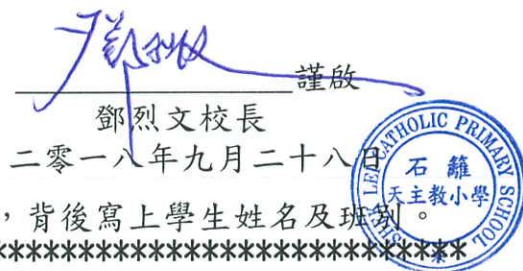 謹啟
鄧烈文校長
二零一八年九月二十八日
，背後寫上學生姓名及班別。
**************************
SHEK LEI CATHOLIC PRIMARY SCHOOL
石籬
天主教小學